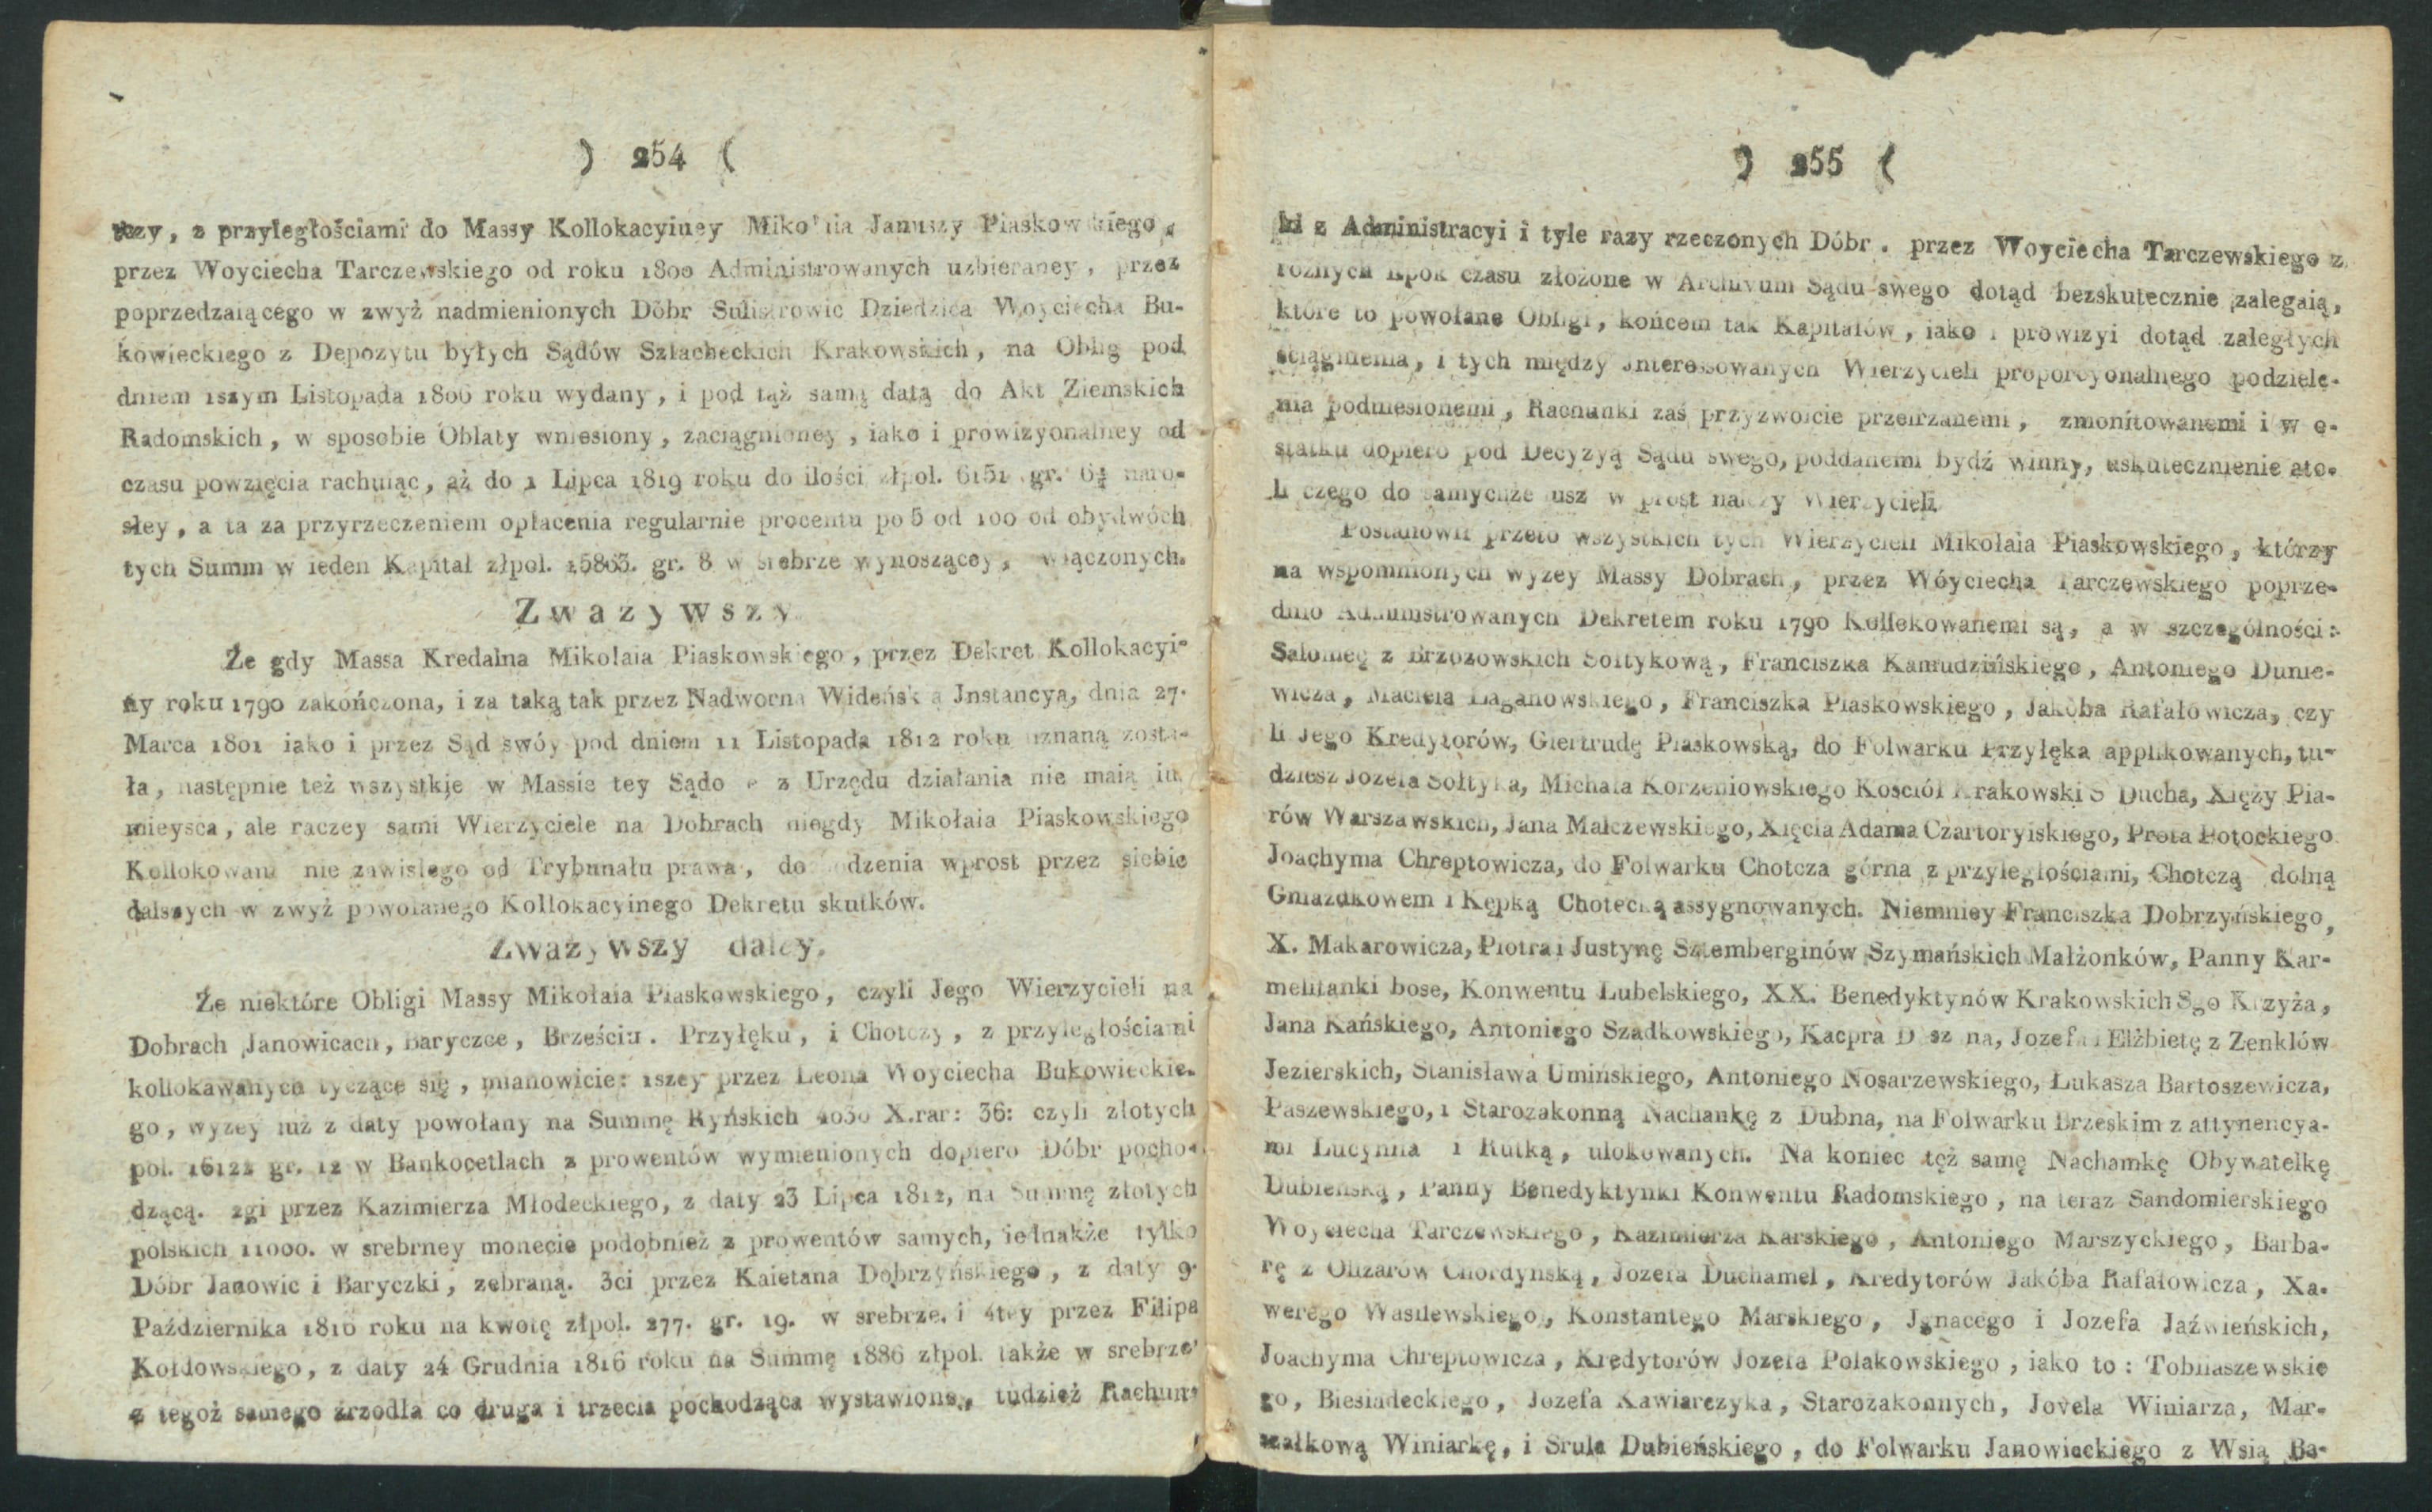 ) 254 (
tczy, z przyległościami do Massy Kollokacyiney Januszy Piaskowskiego,
przez Woyciecha Tarczewskiego od roku 1800 Administrowanych uzbieraney, przez
poprzedzaiącego w zwyż nadmienionych Dóbr Sulistrowic Dziedzica Woyciecha Bu-
kowieckiego z Depozytu byłych Sądów Szlacheckich Krakowskich, na Oblig pod
dniem 1szym Listopada 1806 roku wydany, i pod tąż samą datą do Akt Ziemskich
Radomskich, w sposobie Oblaty wniesiony, zaciągnioney, iako i prowizyonalney od
czasu powzięcia rachuiąc, aż do 1 Lipca 1819 roku do ilości złpol. 6151 gr. naro-
słey, a ta za przyrzeczeniem opłacenia regularnie procentu po 5 od 100 od obydwóch
tych Summ w ieden Kapitał złpol. 15863. gr. 8 w srebrze wynoszącey, włączonych.
Zwazywszy
Że gdy Massa Kredalna Mikołaia Piaskowskiego, przez Dekret Kollokacyi-
ny roku 1790 zakończona, i za taką tak przez Nadworna Wideńska Jnstancyą, dnia 27.
Marca 1801 iako i przez Sąd swóy pod dniem 11 Listopada 1812 roku uznaną zosta-
ła, następnie też wszystkie w Massie tey z Urzędu działania nie maią iu
mieysca, ale raczey sami Wierzyciele na Dobrach niegdy Mikołaia Piaskowskiego
Kollokowani nie zawisłego od Trybunału prawa, wprost przez siebie
dalszych w zwyż powołanego Kollokacyinego Dekretu skutków.
Zważywszy daley.
Że niektóre Obligi Massy Mikołaia Piaskowskiego, czyli Jego Wierzycieli na
Dobrach Janowicach, Baryczce, Brześciu. Przyłęku, i Chotczy, z przyległościami
kollokawanych tyczące się, mianowicie: 1szey przez Leona Woyciecha Bukowieckie-
go, wyzey iuż z daty powołany na Summę Ryńskich 4030 X.rar: 36: czyli złotych
pol. 16122 gr. 12 w Bankocetlach z prowentów wymienionych dopiero Dóbr pocho-
dzącą. 2gi przez Kazimierza Młodeckiego, z daty 23 Lipca 1812, na Summę złotych
polskich 11000. w srebrney monecie podobnież z prowentów samych, iednakże tylko
Dóbr Janowic i Baryczki, zebraną. 3ci przez Kaietana Dobrzyńskiego, z daty 9.
Października 1816 roku na kwotę złpol. 277. gr. 19. w srebrze. i 4tey przez Filipa
Kołdowskiego, z daty 24 Grudnia 1816 roku na Summę 1886 złpol. także w srebrze
z tegoż samego źrzodła co druga i trzecia pochodząca wystawione, tudzież Rachun-
) 255 (
ki z Administracyi i tyle razy rzeczonych Dóbr. przez Woyciecha Tarczewskiego z
rożnych Epok czasu złożone w Archivum Sądu swego dotąd bezskutecznie zalegaią,
które to powołane Obligi, końcem tak Kapitałów, iako i prowizyi dotąd zaległych
ściągnienia, i tych między Jnteressowanych Wierzycieli proporcyonalnego podziele-
nia podniesionemi, Rachunki zaś przyzwoicie przeirzanemi, zmonitowanemi i w o-
statku dopiero pod Decyzyą Sądu swego, poddanemi bydź winny, uskutecznienie ato-
li czego do samychże iusz w prost należy Wierzycieli.
Postanowił przeto wszystkich tych Wierzycieli Mikołaia Piaskowskiego, którzy
na wspomnionych wyzey Massy Dobrach, przez Wóyciecha Tarczewskiego poprze-
dnio Administrowanych Dekretem roku 1790 Kollokowanemi są, a w szczególności:
Salomeę z Brzozowskich Sołtykową, Franciszka Kamudzińskiego, Antoniego Dunie-
wicza, Macieia Łaganowskiego, Franciszka Piaskowskiego, Jakóba Rafałowicza, czy
li Jego Kredytorów, Giertrudę Piaskowską, do Folwarku Przyłęka applikowanych, tu-
dziesz Jozefa Sołtyka, Michała Korzeniowskiego Kościół Krakowski S Ducha, Xięży Pia-
rów Warszawskich, Jana Malczewskiego, Xięcia Adama Czartoryiskiego, Prota Potockiego
Joachyma Chreptowicza, do Folwarku Chotcza górna z przyległościami, Chotczą dolną
Gniazdkowem i Kępką Chotecką assygnowanych. Niemniey Franciszka Dobrzyńskiego,
X. Makarowicza, Piotra i Justynę Sztemberginów Szymańskich Małżonków, Panny Kar-
melitanki bose, Konwentu Lubelskiego, XX. Benedyktynów Krakowskich Sgo Krzyża,
Jana Kańskiego, Antoniego Szadkowskiego, Kacpra Jozefa i Elżbietę z Zenklów
Jezierskich, Stanisława Umińskiego, Antoniego Nosarzewskiego, Łukasza Bartoszewicza,
Paszewskiego, i Starozakonną Nachankę z Dubna, na Folwarku Brzeskim z attynencya-
mi Lucynna i Rutką, ulokowanych. Na koniec też samę Nachamkę Obywatelkę
Dubieńską, Panny Benedyktynki Konwentu Radomskiego, na teraz Sandomierskiego
Woyciecha Tarczewskiego, Kazimierza Karskiego, Antoniego Marszyckiego, Barba-
rę z Olizarów Chordyńską, Jozefa Duchamel, Kredytorów Jakóba Rafałowicza, Xa-
werego Wasilewskiego, Konstantego Marskiego, Jgnacego i Jozefa Jaźwieńskich,
Joachyma Chreptowicza, Kredytorów Jozefa Polakowskiego, iako to: Tobiiaszewskie
go, Biesiadeckiego, Jozefa Kawiarczyka, Starozakonnych, Jovela Winiarza, Mar-
szałkową Winiarkę, i Srula Dubieńskiego, do Folwarku Janowieckiego z Wsią Ba-